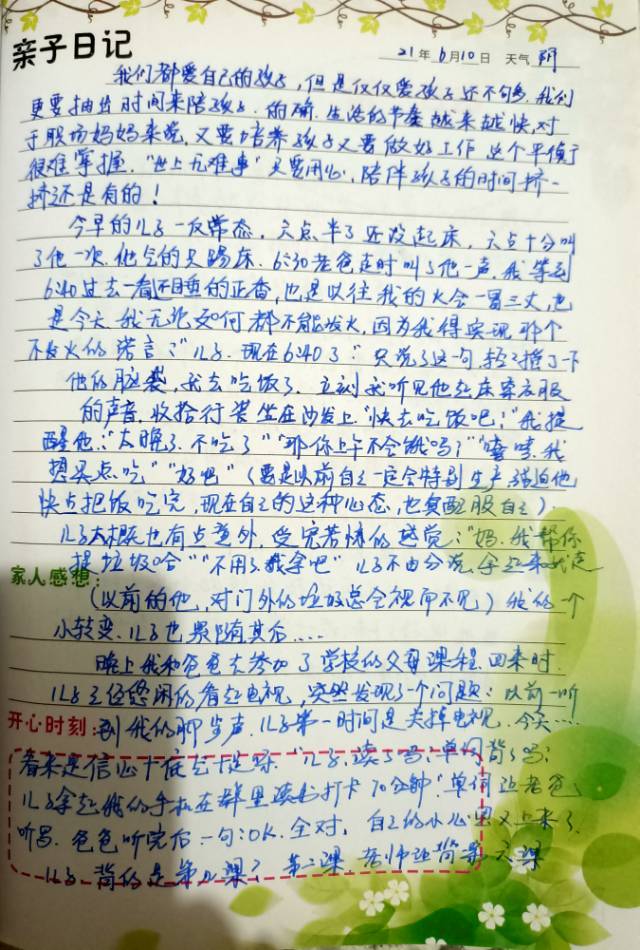 亲子日记
21年6月10日 天气 阴
我们都爱自己的孩子,但是仅仅爱孩子还不够,我们
更要抽出时间来陪孩子。的确,生活的节奏越来越快,对
于职场妈妈来说,又要培养孩子又要做好工作 这个平衡
很难掌握。"世上无难事"只要用心,陪伴孩子的时间挤一
挤还是有的!
今早的儿子一反常态,六点半了还没起床,六点十分叫
了他一次,他 的又赐床。6:30老爸走时叫了他一声,我等到
6:40过去一看还睡的正香,也是以往我的火会一冒三丈,也
是今天我无论如何都不能发火,因为我得实现那个
不发火的诺言:"儿子,现在6:40了"只说了这一句,轻轻摸了一下
他的脑袋,我去吃饭了。立刻我听见他起床穿衣服
的声音,收拾行装坐在沙发上"快去吃饭吧!"我提
醒他:"太晚了,不吃了""那你上午不会饿吗?""嘻嘻,我
想买点吃""好吧"(要是以前自己一定会特别生 强迫他
快点把饭吃完,现在自己的这种心态,也真 服自己)
儿子大概也有点意外,受宠若惊的感觉:"妈,我帮你
提垃圾哈""不用了我拿吧"儿子不由分说,拿起来就走
家人感想:
(以前的他,对门外的垃圾总会视而不见)我的一个
小转变,儿子也累随其后....
晚上我和爸爸去参加了学校的父母课程,回来时
儿子正在悠闲的看起电视,突然发现了一个问题:以前一听
开心时刻:
到我的脚步声,儿子第一时间是关掉电视,今天....
看来是信心十 十足呀。"儿子,读了吗?单词背了吗?
儿子拿起我的手机在群里读书打卡70分钟"单词让老爸
听写。爸爸听完后一句:OK.全对。自己的小心 又上来了。
儿子,背的是第几课?第二课,老师让背第六课